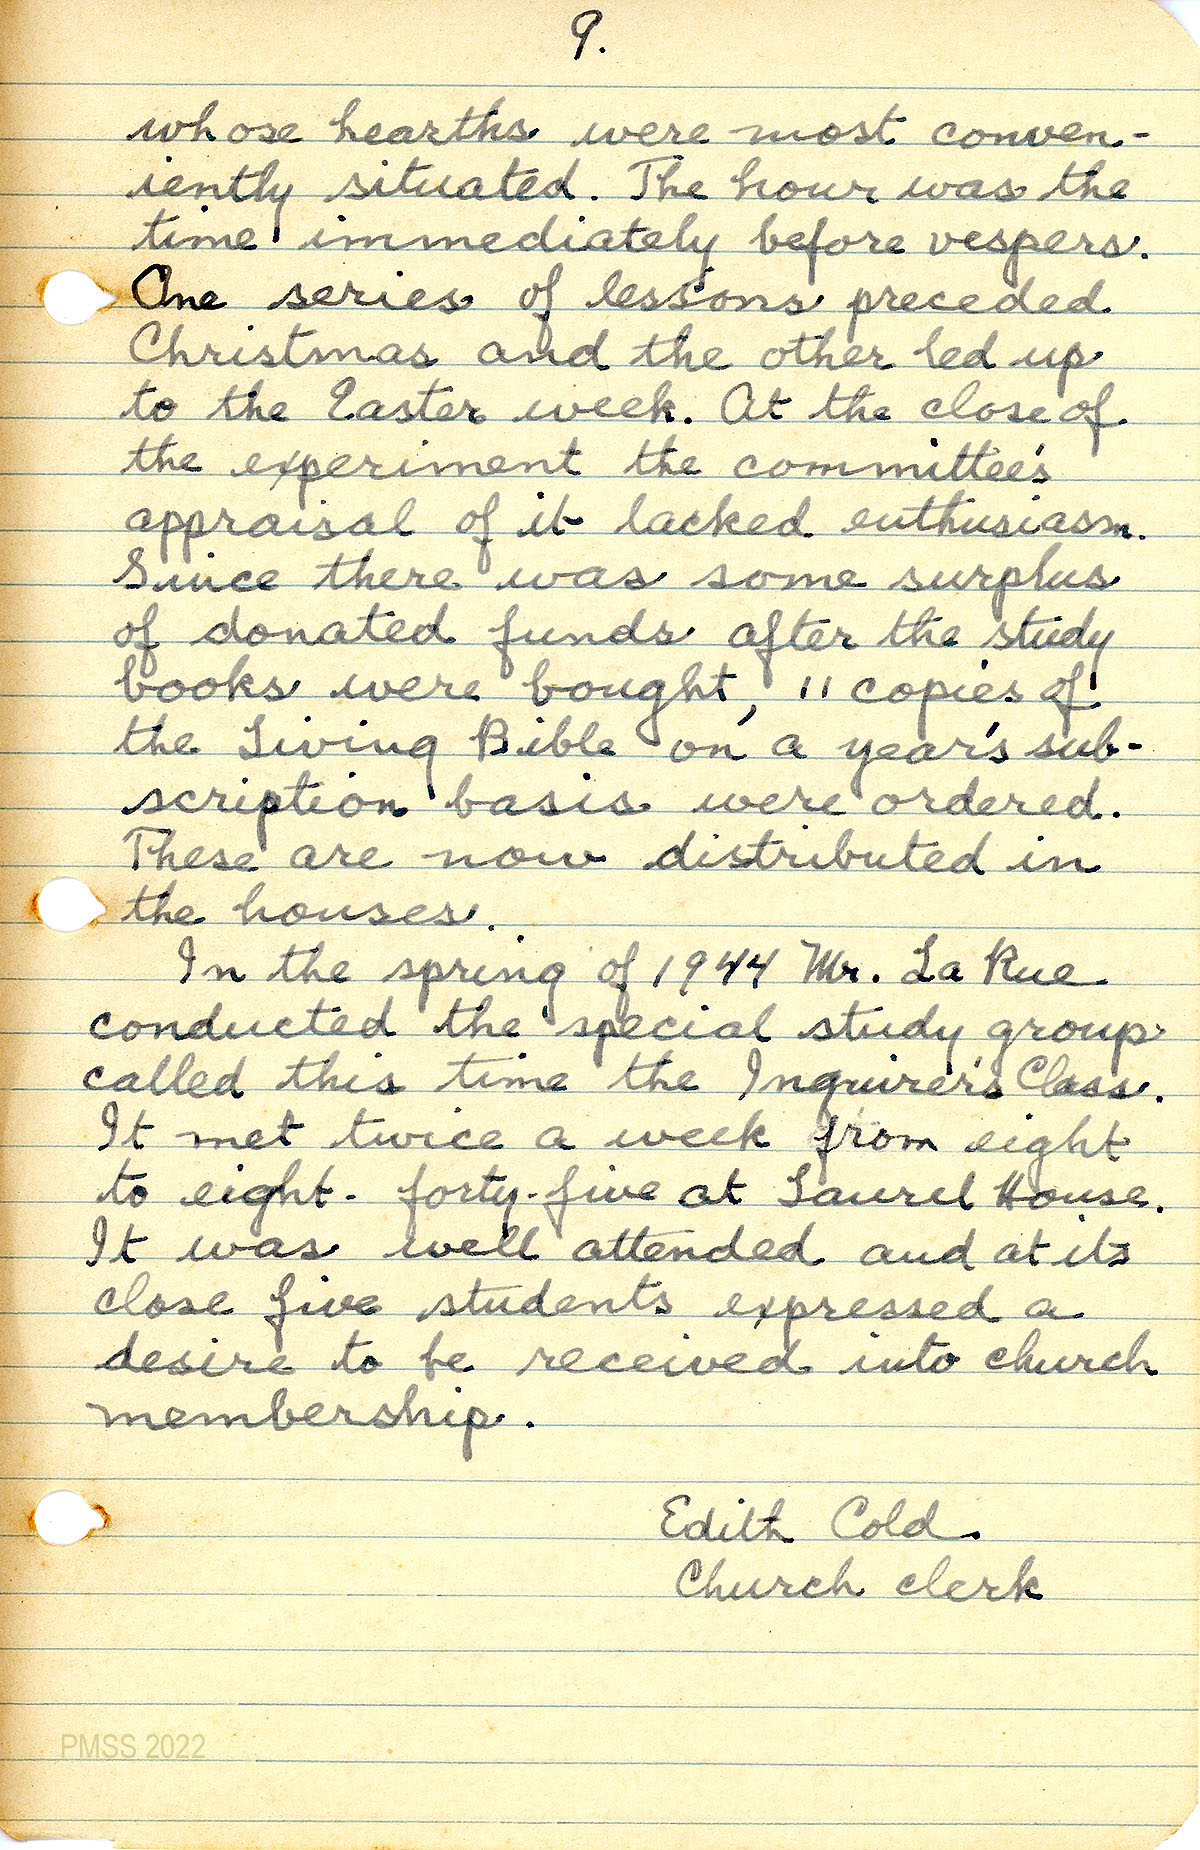 9.
whose hearths were most conven-
iently situated. The hour was the
time immediately before vespers.
One series of lessons preceded
Christmas and the other led up
to the Easter week. At the close of
the experiment the committee's
appraisal of it lacked enthusiasm.
Since there was some surplus
of donated funds after the study
books were bought, 11 copies of
the Living Bible on a year's sub-
scription basis were ordered.
These are now distributed in
the houses.
In the spring of 1944 Mr. La Rue
conducted the special study group
called this time the Inquirer's Class.
It met twice a week from eight
to eight-forty-five at Laurel House.
It was well attended and at its
close five students expressed a
desire to be received into church
membership.
Edith Cold.
Church clerk
PMSS 2022